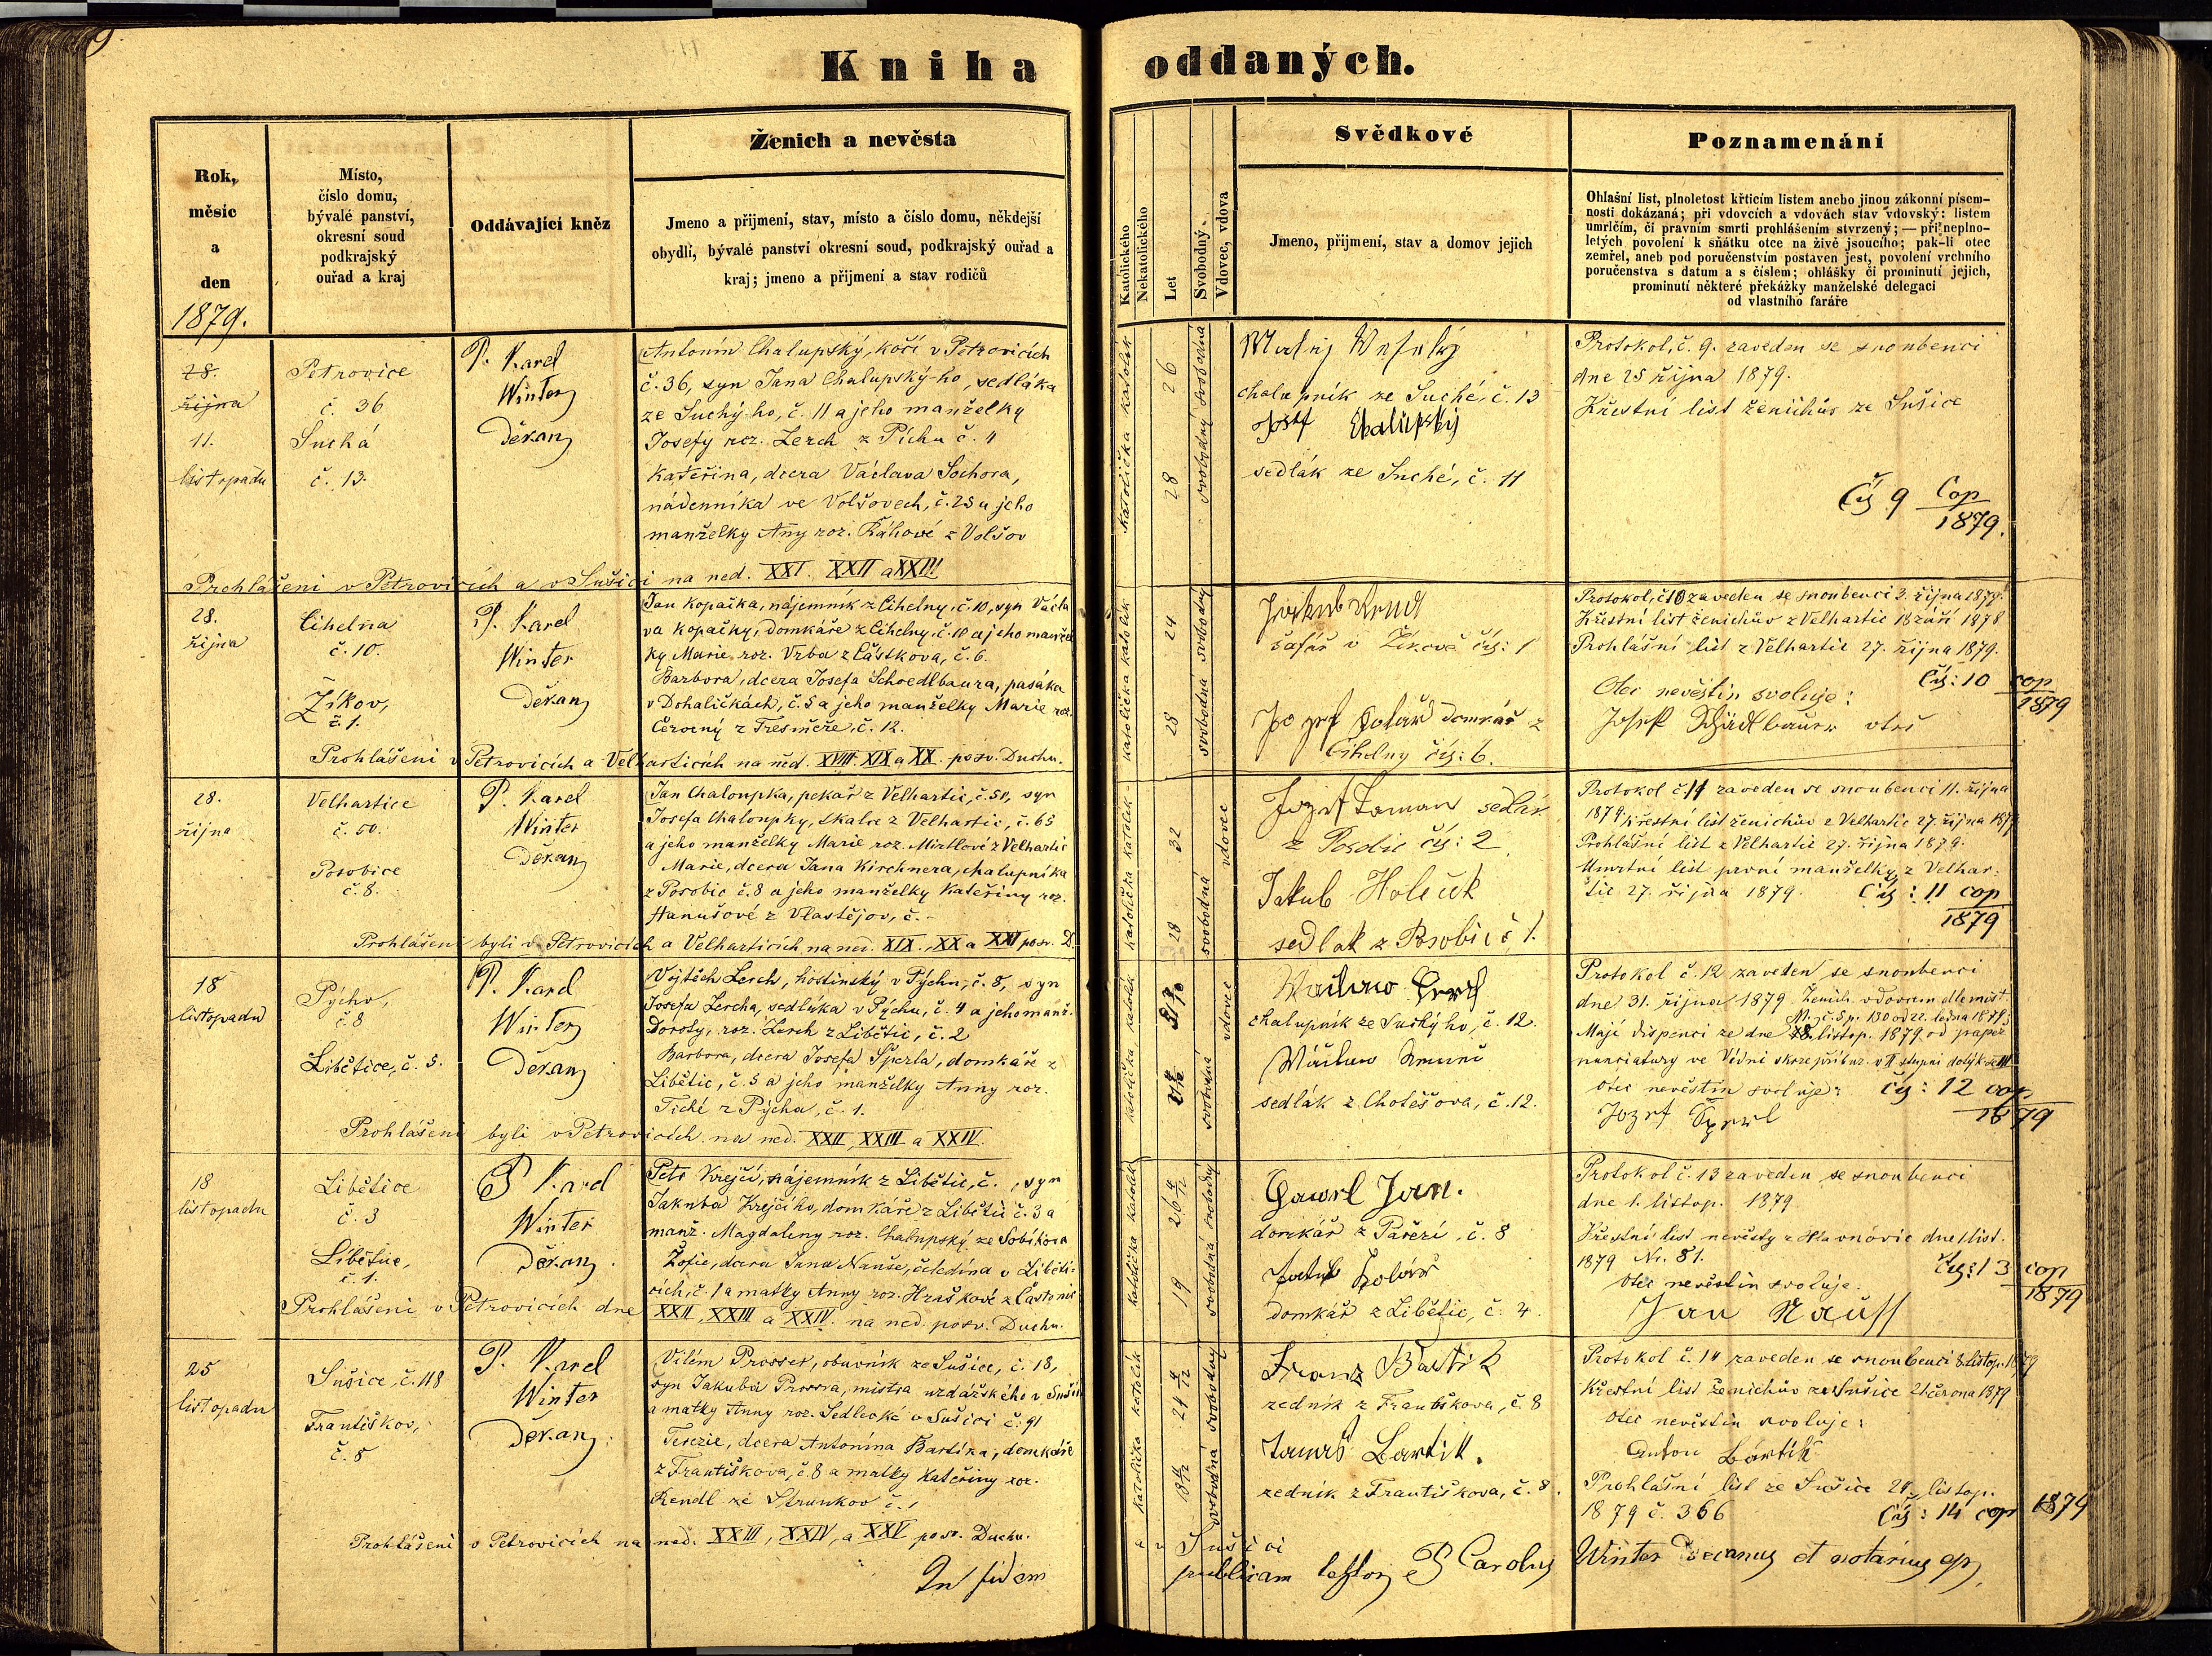 Kniha oddaných.
Rok,
měsíc
a
den
1879.
Místo,
číslo domu,
bývalé panství,
okresní soud
podkrajský
ouřad a kraj
Oddávající kněz
Ženich a nevěsta
Jmeno a přijmení, stav, místo a číslo domu, někdejší
obydlí, bývalé panství okresní soud, podkrajský ouřad a
kraj; jmeno a přijmení a stav rodičů
Katolického
Nekatolického
Let
Svobodný-
Vdovec, vdova
Svědkové
Jmeno, přijmení, stav a domov jejich
Poznamenání
Ohlašní list, plnoletost křticím listem anebo jinou zákonní písem-
nosti dokázaná; při vdovcích a vdovách stav vdovský: listem
umrlčím, či pravním smrti prohlášením stvrzený; — při neplno-
letých povolení k sňátku otce na živě jsoucího; pak-li otec
zemřel, aneb pod poručenstvím postaven jest, povolení vrchního
poručenstva s datum a s číslem; ohlášky či prominutí jejich,
prominutí některé překážky manželské delegací
od vlastního faráře
28.
října
11.
listopadu
Petrovice
č. 36
Suchá
č. 13.
P. Karel
Winter
Děkan
Antonín Chalupský, kočí v Petrovicích
č. 36, syn Jana Chalupský-ho, sedláka
ze Suchý-ho, č. 11 a jeho manželky
Josefy roz. Lerch z Píchu č. 4
Kateřina, dcera Václava Sochora,
nádenníka ve Volšovech, č. 25 a jeho
manželky Any roz. Ráhové z Volšov
Prohlášeni v Petrovicích a v Sušici na ned. XXI. XXII a XXIII
katolička katolík
26
28
svobodný svobodná
Matěj Veselý
chalupník ze Suché, č. 13
Josef Chalupský
sedlák ze Suché, č. 11
Protokol, č. 9. zaveden se snoubenci
dne 25 října 1879.
Křestní list ženichův ze Sušice
Čís 9 Cop
1879.
28.
října
Cihelna
č. 10.
Žíkov,
č. 1.
P. Karel
Winter
Děkan
Jan Kopačka, nájemník z Cihelny, č. 10, syn Václa
va Kopačky, domkáře z Cihelny, č. 10 a jeho manžel
ky Marie roz. Vrba z Částkova, č. 6.
Barbora, dcera Josefa Schoedlbaura, pasáka
v Dohaličkách, č. 5 a jeho manželky Marie roz.
Červený z č. 12.
Prohlášeni v Petrovicích a Velharticích na ned. XVIII. XIX a XX. po sv. Duchu.
katolička katolík
24
28
svobodná svobodný
Jakub
šafář v Žíkově čís: 1
Jozef Kolář domkář z
Cihelny čís: 6.
Protokol, č 10 zaveden se snoubenci 3. října 1879.
Křestní list ženichův z Velhartic 18 září 1878
Prohlášní list z Velhartic 27. října 1879.
Čís: 10 cop
1879
Otec nevěstin svoluje:
Josef Schädlbauer otec
28.
října
Velhartice
č. 50.
Posobice
č. 8.
P. Karel
Winter
Děkan
Jan Chaloupka, pekař z Velhartic, č. 50, syn
Josefa Chaloupky, tkalce z Velhartic, č. 65
a jeho manželky Marie roz. Mirtlové z Velhartic
Marie, dcera Jana Kirchnera, chalupníka
z Posobic č. 8 a jeho manželky Kateřiny roz.
Hanušové z Vlastějov, č. -
Prohlášeni byli v Petrovicích a Velharticích na ned. XIX. XX a XXI po sv. D.
katolička katolík
32
28
svobodná vdovec
Jozef Toman sedlák
z Posobic čís: 2
Jakub Holeček
sedlak z Posobic č 1.
Protokol č. 11 zaveden se snoubenci 11. října
1879 křestní list ženichův z Velhartic 27. října 1879
Prohlášní list z Velhartic 27. října 1879.
Umrtní list první manželky z Velhar-
tic 27. října 1879. Čís: 11 cop
1879
18
listopadu
Pýchov,
č. 8
Libětice, č. 5.
P. Karel
Winter
Děkan
Vojtěch Lerch, hostinský v Pýchu, č. 8, syn
Josefa Lercha, sedláka v Pýchu, č. 4 a jeho manž.
Doroty, roz. Lerch z Libětic, č. 2
Barbora, dcera Josefa Šperla, domkáře z
Libětic, č. 5 a jeho manželky Anny roz.
Tiché z Pýcha, č. 1.
Prohlášeni byli v Petrovicích na ned. XXII, XXIII a XXIV.
katolička, katolík
svobodná vdovec
Václav Lerch
chalupník ze Suchýho, č. 12.
Václav
sedlák z Chotěšova, č. 12.
Protokol č. 12 zaveden se snoubenci
dne 31. října 1879. Ženich vdovcem dle
Mají dispenci ze dne 18. listop. 1879 od papež.
nunciatury ve Vídni
Otec nevěstin svoluje: čís: 12 cop
1879
Jozef Šperl
18
listopadu
Libětice
č. 3
Libětice,
č. 1.
P. Karel
Winter
Děkan
Petr Krejčí, nájemník z Libětic, č. , syn
Jakuba Krejčího, domkáře z Libětic č. 3 a
manž. Magdaleny roz. Chalupský ze Sobíšova
Žofie, dcera Jana Nauše, čeledína v Liběti-
cích, č. 1 a matky Anny roz. Hraškové z Častonic
Prohlášeni v Petrovicích dne XXII, XXIII a XXIV. na ned. po sv. Duchu.
katolička katolík
26
19
svobodná svobodný
Gawrl Jan.
domkář z Pařezí, č. 8
Jakub Kolář
domkář z Libětic, č. 4.
Protokol č. 13 zaveden se snoubenci
dne 1. listop. 1879
Křestní list nevěsty z Hlavňovic dne 1 list.
1879 Nr. 81. čís: 13 cop
1879
otec nevěstin svoluje.
Jan Nauss
25
listopadu
Sušice, č. 118
Františkov,
č. 8
P. Karel
Winter
Děkan
Vilém Prosser, obuvník ze Sušice, č. 18,
syn Jakuba Prossra, mistra uzdářského v Sušici
a matky Anny roz. Sedlecké v Sušici č. 91
Terezie, dcera Antonína Bartíka, domkáře
z Františkova, č. 8 a matky Kateřiny roz.
Rendl ze Strunkov č. 1
Prohlášeni v Petrovicích na ned. XXIII, XXIV, a XXV po sv. Duchu. a v Sušici
katolička katolík
24
18
svobodná svobodný
Franz Bartik
zedník z Františkova, č. 8
Tomáš Bartik.
zedník z Františkova, č. 8.
Protokol č. 14 zaveden se snoubenci 8. listop. 1879
Křestní list ženichův ze Sušice 21 června 1879
Otec nevěstin svoluje:
Anton Bartik
Prohlášní list ze Sušice 24. listop.
1879 č. 366 Čís: 14 cop 1879
In fidem publicam testor P. Carolus Winter Decanus et notarius